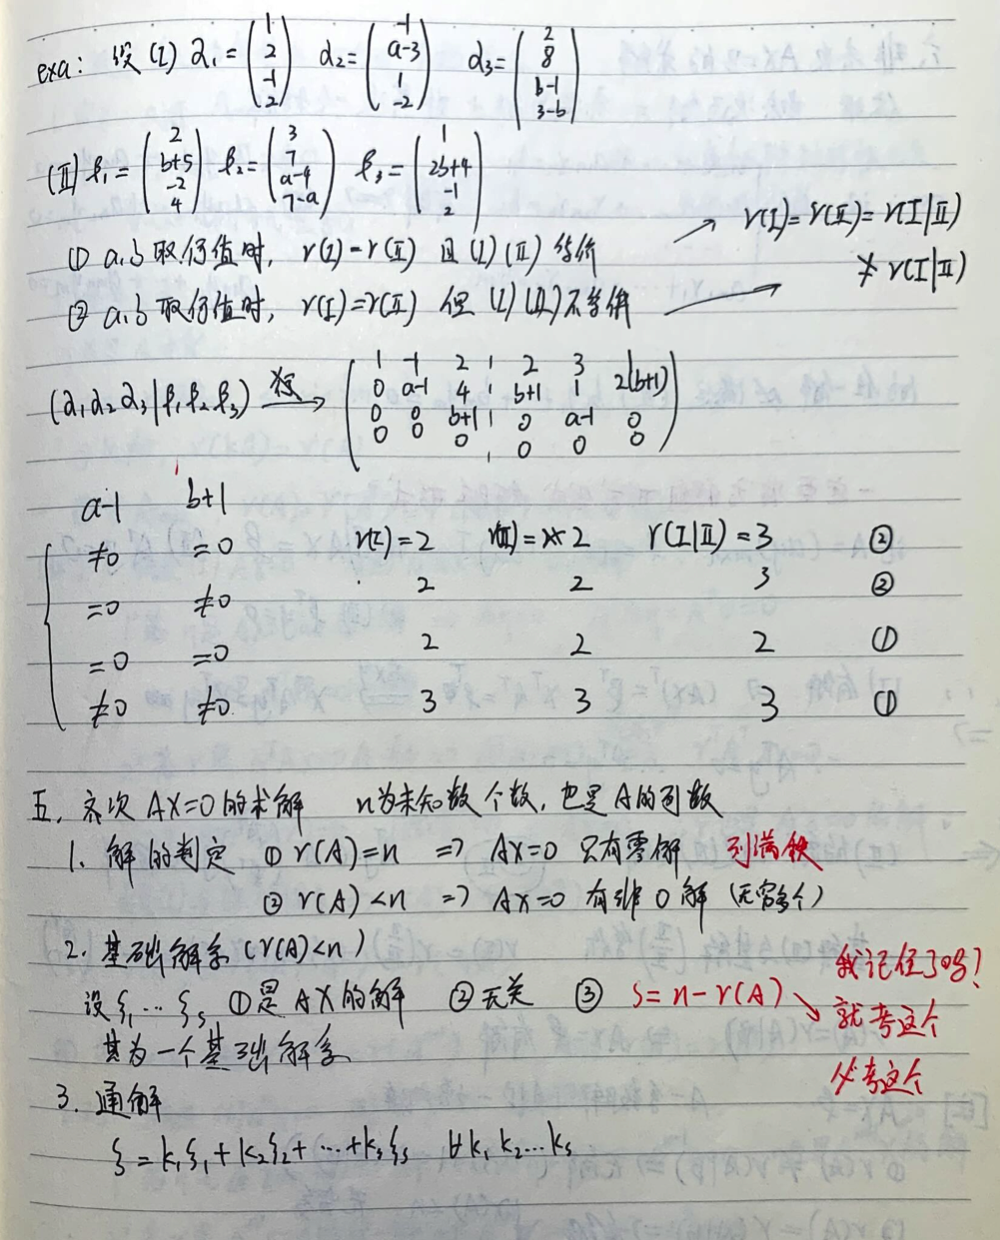 exa: 设 (I) α₁ = (1 2 -1 2) α₂ = (-1 a-3 1 -2) α₃ = (2 8 b-1 3-b)
(II) β₁ = (2 b+5 -2 4) β₂ = (3 7 a-4 7-a) β₃ = (1 2b+4 -1 2)
① a,b 取何值时, r(I)=r(II) 且 (I) (II) 等价 → r(I)=r(II)=r(I|II)
② a,b 取何值时, r(I)=r(II) 但 (I) (II) 不等价 → ≠ r(I|II)
(α₁ α₂ α₃ | β₁ β₂ β₃) →
1 -1 2 | 2 3 1
0 a-1 4 | b+1 1 2(b+1)
0 0 b+1 | 0 a-1 0
0 0 0 | 0 0 0
a-1 b+1
≠0 =0 r(I)=2 r(II)=2 r(I|II)=3 ②
=0 ≠0 2 2 3 ②
=0 =0 2 2 2 ①
≠0 ≠0 3 3 3 ①
五. 齐次 AX=0 的求解 n为未知数个数, 也是A的列数
1. 解的判定 ① r(A)=n ⇒ AX=0 只有零解 列满秩
② r(A)<n ⇒ AX=0 有非0解 (无穷多个)
2. 基础解系 (r(A)<n)
设 ξ₁…ξₛ ① 是 AX 的解 ② 无关 ③ s=n-r(A) → 我记住了吗?
就考这个
必考这个
其为一个基础解系
3. 通解
ξ=k₁ξ₁+k₂ξ₂+…+kₛξₛ ∀k₁ k₂…kₛ